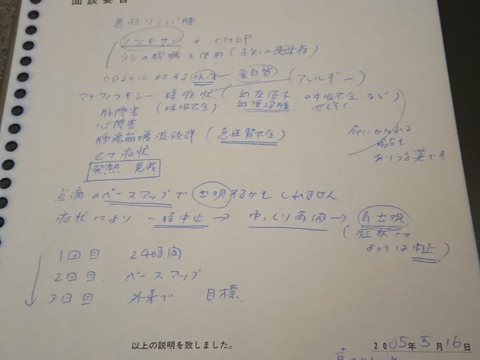 面談要旨
悪性リンパ腫
リツキサン + CHOP
CD20に対する抗体 — 蛋白質 (アレルギー)
アナフィラキシー様症状 (血圧低下 呼吸不全 など)
肺障害 (呼吸不全) 血管浮腫 ぜんそく
心障害
腫瘍崩壊症候群 (急性腎不全)
ヒフ症状
発熱 悪寒
命にかかわる
ありうる薬です
点滴のペースアップで出現するかもしれません
症状により 一時中止 → ゆっくり再開 → 再出現
(症状によっては中止)
1回目 24時間
2回目 ペースアップ
3回目 外来で 目標
以上の説明を致しました。
2005年5月16日